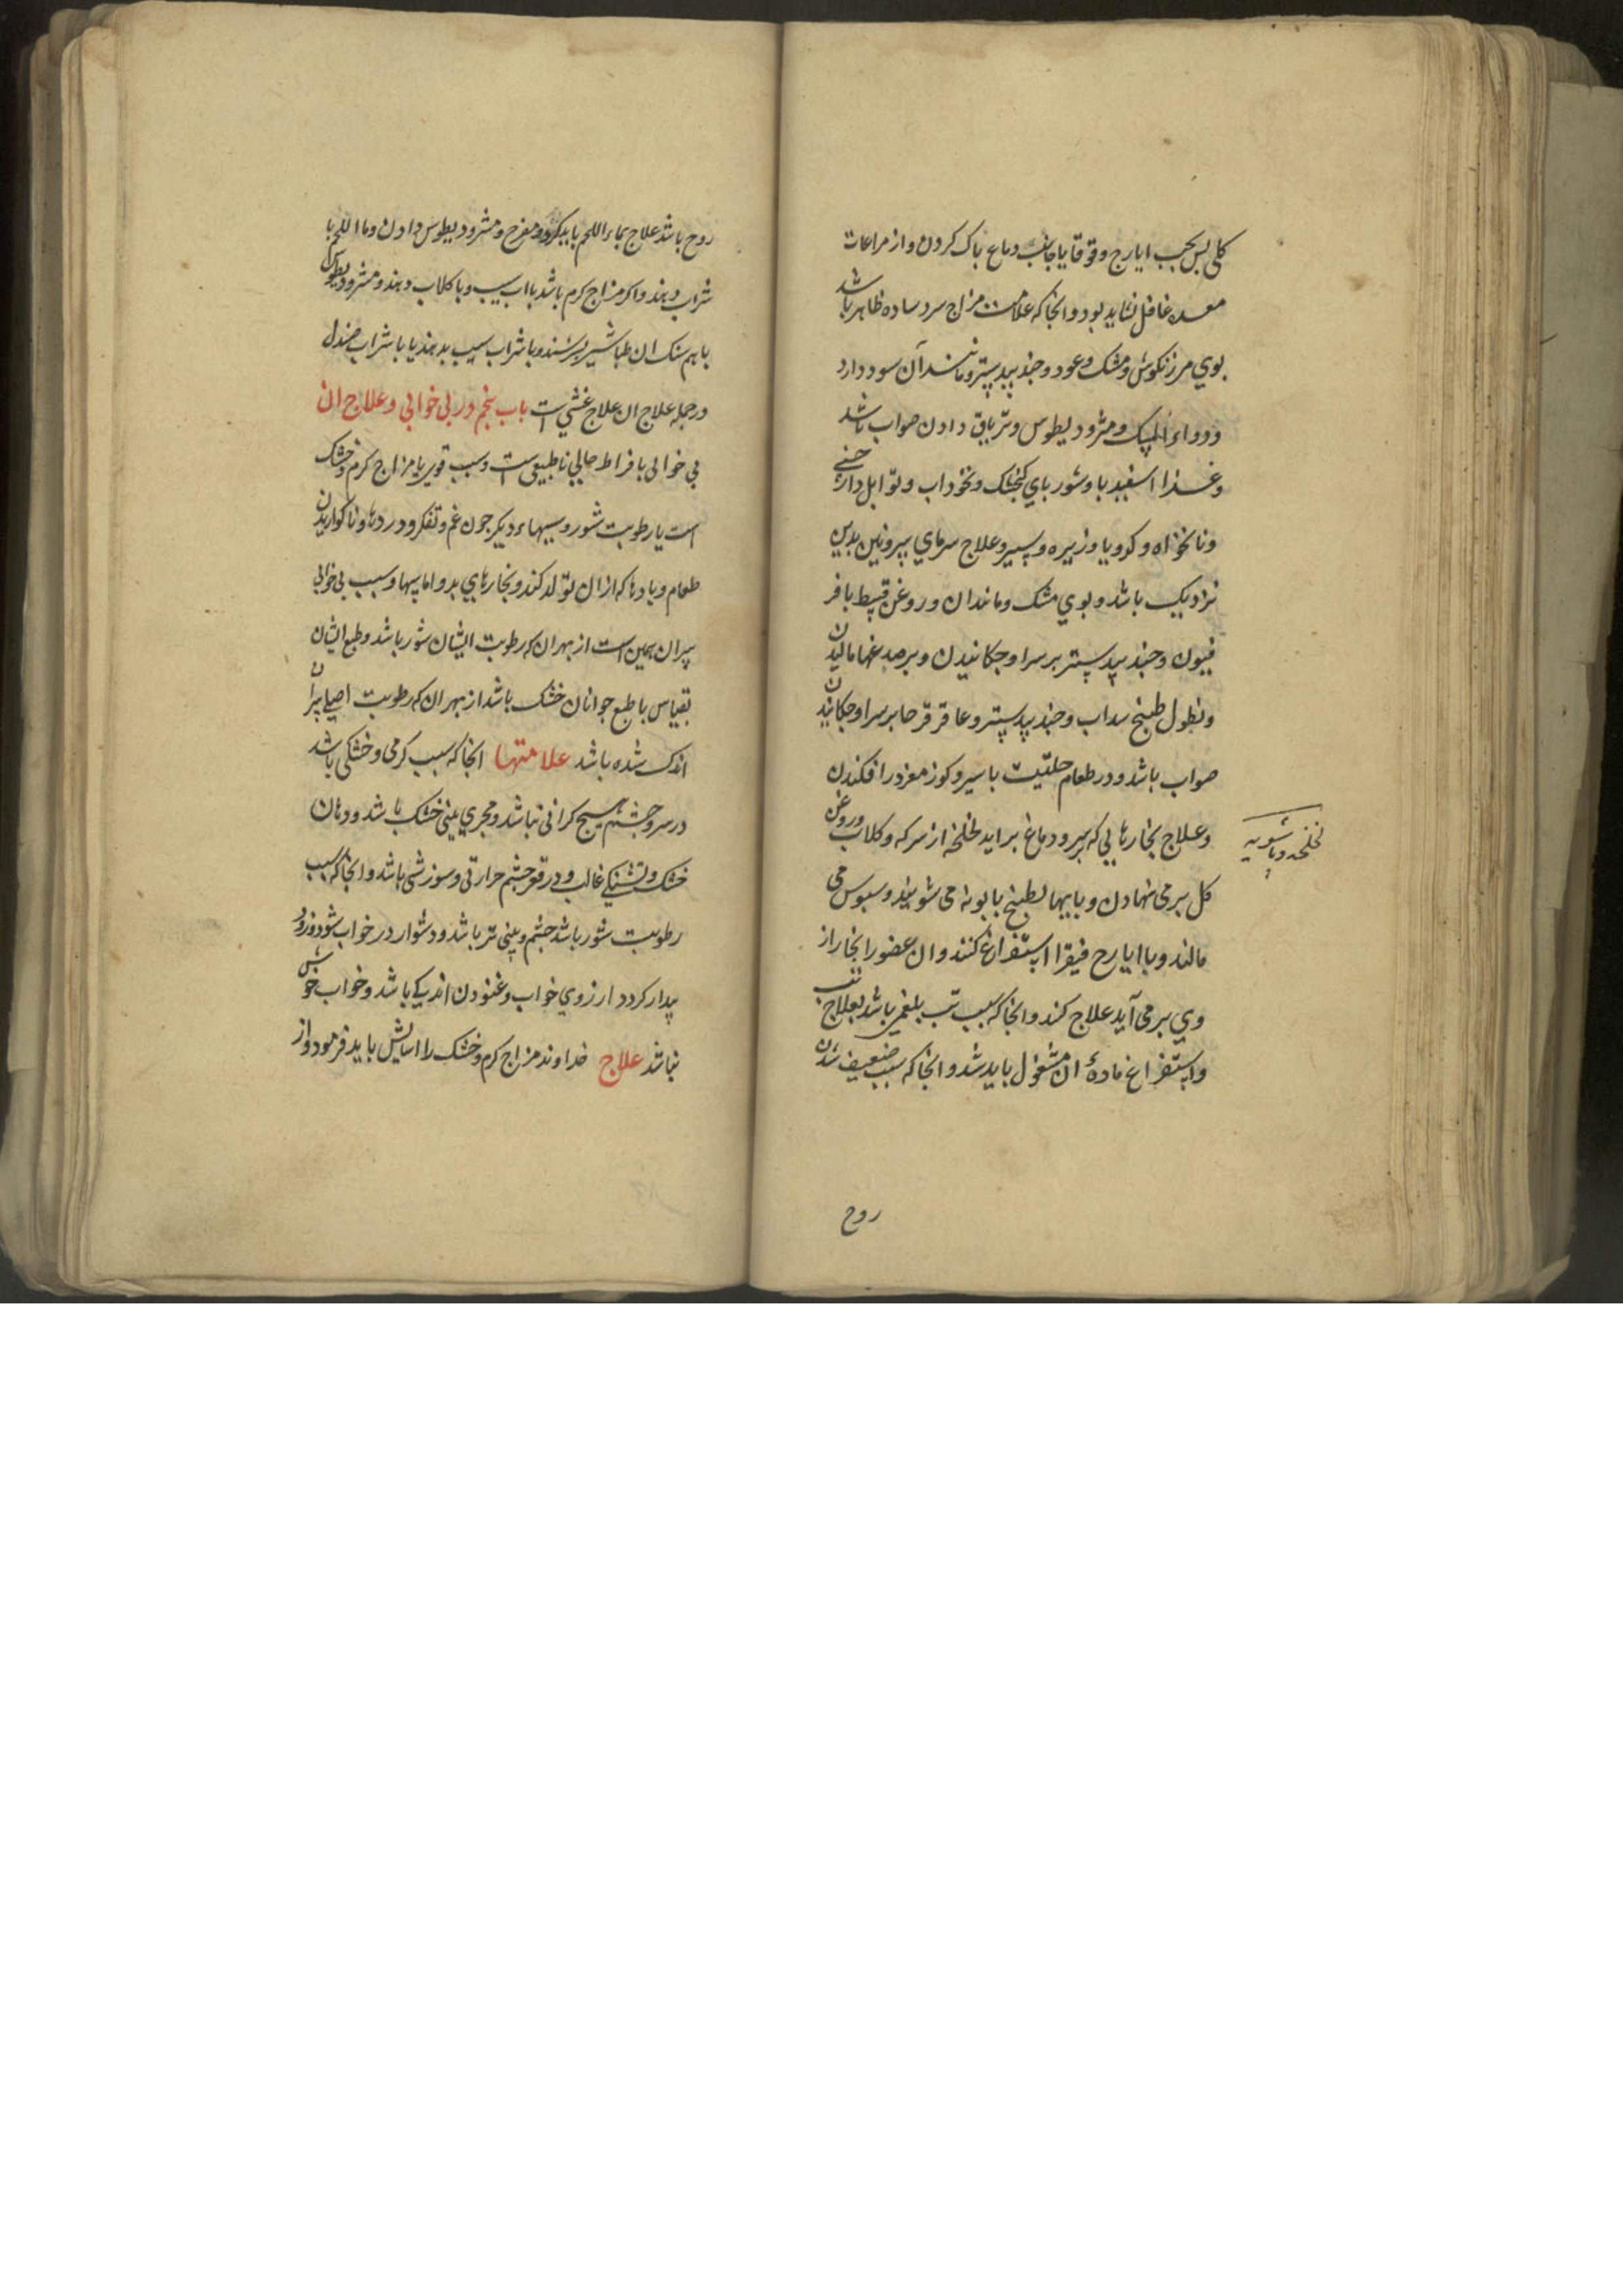 کلی پس بحب ایارج وقوقایا جانب دماع باک کردن واز مراعات
معده غافل نشاید بود وانجا که علامت مزاج سرد ساده ظاهر باشد
بوی مرزنکوش ومشک وعود وجندبیدستر ومانند آن سود دارد
ودواء المسک ومثرودیطوس وتریاق دادن صواب باشد
وغذا اسفیدبا وشوربای کنجشک ونخوداب وتوابل دارچینی
ونانخواه وکرویا وزیره وسیر وعلاج سرمای بیرونین بدین
نزدیک باشد وبوی مشک ومانندان وروغن قسط بافر
فیون وجندبیدستر بر سر او چکانیدن وبرصدغها مالیدن
ونطول طبیخ سداب وجندبیدستر وعاقرقرحا بر سر او چکانیدن
صواب باشد ودر طعام حلتیت با سیر وکوز مغز در افکندن
وعلاج بخارهایی که بسر ودماغ براید لخلخه از سرکه وکلاب وروغن
کل بر می نهادن وبایها بطبیخ بابونه می شویند وسبوس می
مالند وبا ایارح فیقرا استفراغ کنند وان عضو را بخار از
وی بر می آید علاج کند وانجا که سبب تب بلغمی باشد بعلاج تب
واستفراغ ماده ان مشغول باید شد وانجا که سبب ضعیف شدن
لخلخه وباشویه
روح
روح باشد علاج بماء اللحم باید کرد ومفرح ومثرودیطوس دادن وما اللحم با
شراب دهند واکر مزاج کرم باشد با اب سیب وبا کلاب دهند ومثرودیطوس
با هم سنک ان طباشیر بسرشند وبا شراب سیب بدهند یا با شراب صندل
ودرجمله علاج ان علاج غشی است باب پنجم در بی خوابی وعلاج ان
بی خوابی بافراط حالی ناطبیعی ست وسبب قوی یا مزاج کرم وخشک
است یا رطوبت شور وسببهاء دیکر جون غم وتفکر ودردها وناکواریدن
طعام وبادها که ازان تولد کند وبخارهای بد واماسها وسبب بی خوابی
پیران همین است از بهر ان که رطوبت ایشان شور باشد وطبع ایشان
بقیاس با طبع جوانان خشک باشد از بهر ان که رطوبت اصلی پیران
اندک شده باشد علامتها انجا که سبب کرمی وخشکی باشد
در سر وچشم هیچ کرانی نباشد ومجری بینی خشک باشد ودهان
خشک وتشنکی غالب ودر قعر چشم حرارتی وسوزشی باشد وانجا که سبب
رطوبت شور باشد چشم وبینی تر باشد ودشوار در خواب شود وزود
بیدار کردد ارزوی خواب وغنودن اندکی باشد وخواب خوش
نباشد علاج خداوند مزاج کرم وخشک را اسایش باید فرمود واز